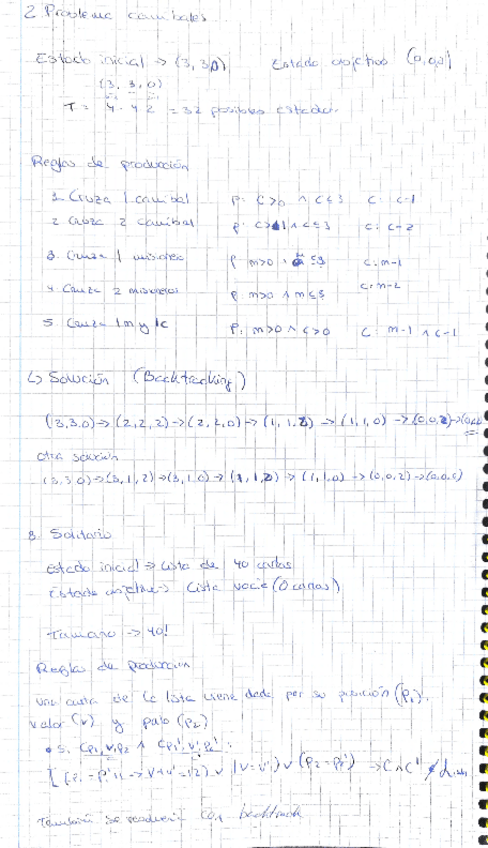 2. Problema canibales
Estado inicial → (3, 3, 0) Estado objetivo (0,0,0)
(3, 3, 0)
T = 4 · 4 · 2 = 32 posibles estados.
Reglas de producción
1. Cruza 1 canibal P: C>0 ∧ C≤3 C: C-1
2. Cruza 2 canibal P: C>1 ∧ C≤3 C: C-2
3. Cruza 1 misionero P: m>0 ∧ m≤3 C: m-1
4. Cruza 2 misioneros P: m>0 ∧ m≤3 C: m-2
5. Cruza 1m y 1c P: m>0 ∧ C>0 C: m-1 ∧ C-1
↳ Solución (Backtracking)
(3,3,0)→(2,2,2)→(2,2,0)→(1,1,2)→(1,1,0)→(0,0,2)→
otra solución
(3,3,0)→(3,1,2)→(3,1,0)→(1,1,2)→(1,1,0)→(0,0,2)→(0,0,0)
8. Solitario
Estado inicial → Lista de 40 cartas
Estado objetivo → Lista vacía (0 cartas)
Tamaño → 40!
Regla de producción
Una carta de la lista viene dada por su posición (P₁),
valor (v) y palo (P₂)
• S. CP₁,v,P₂ ∧ CP₁',v',P₂' :
(v=v') ∨ (P₂=P₂') → C ∧ C' ∉
También se resuelve con backtrack